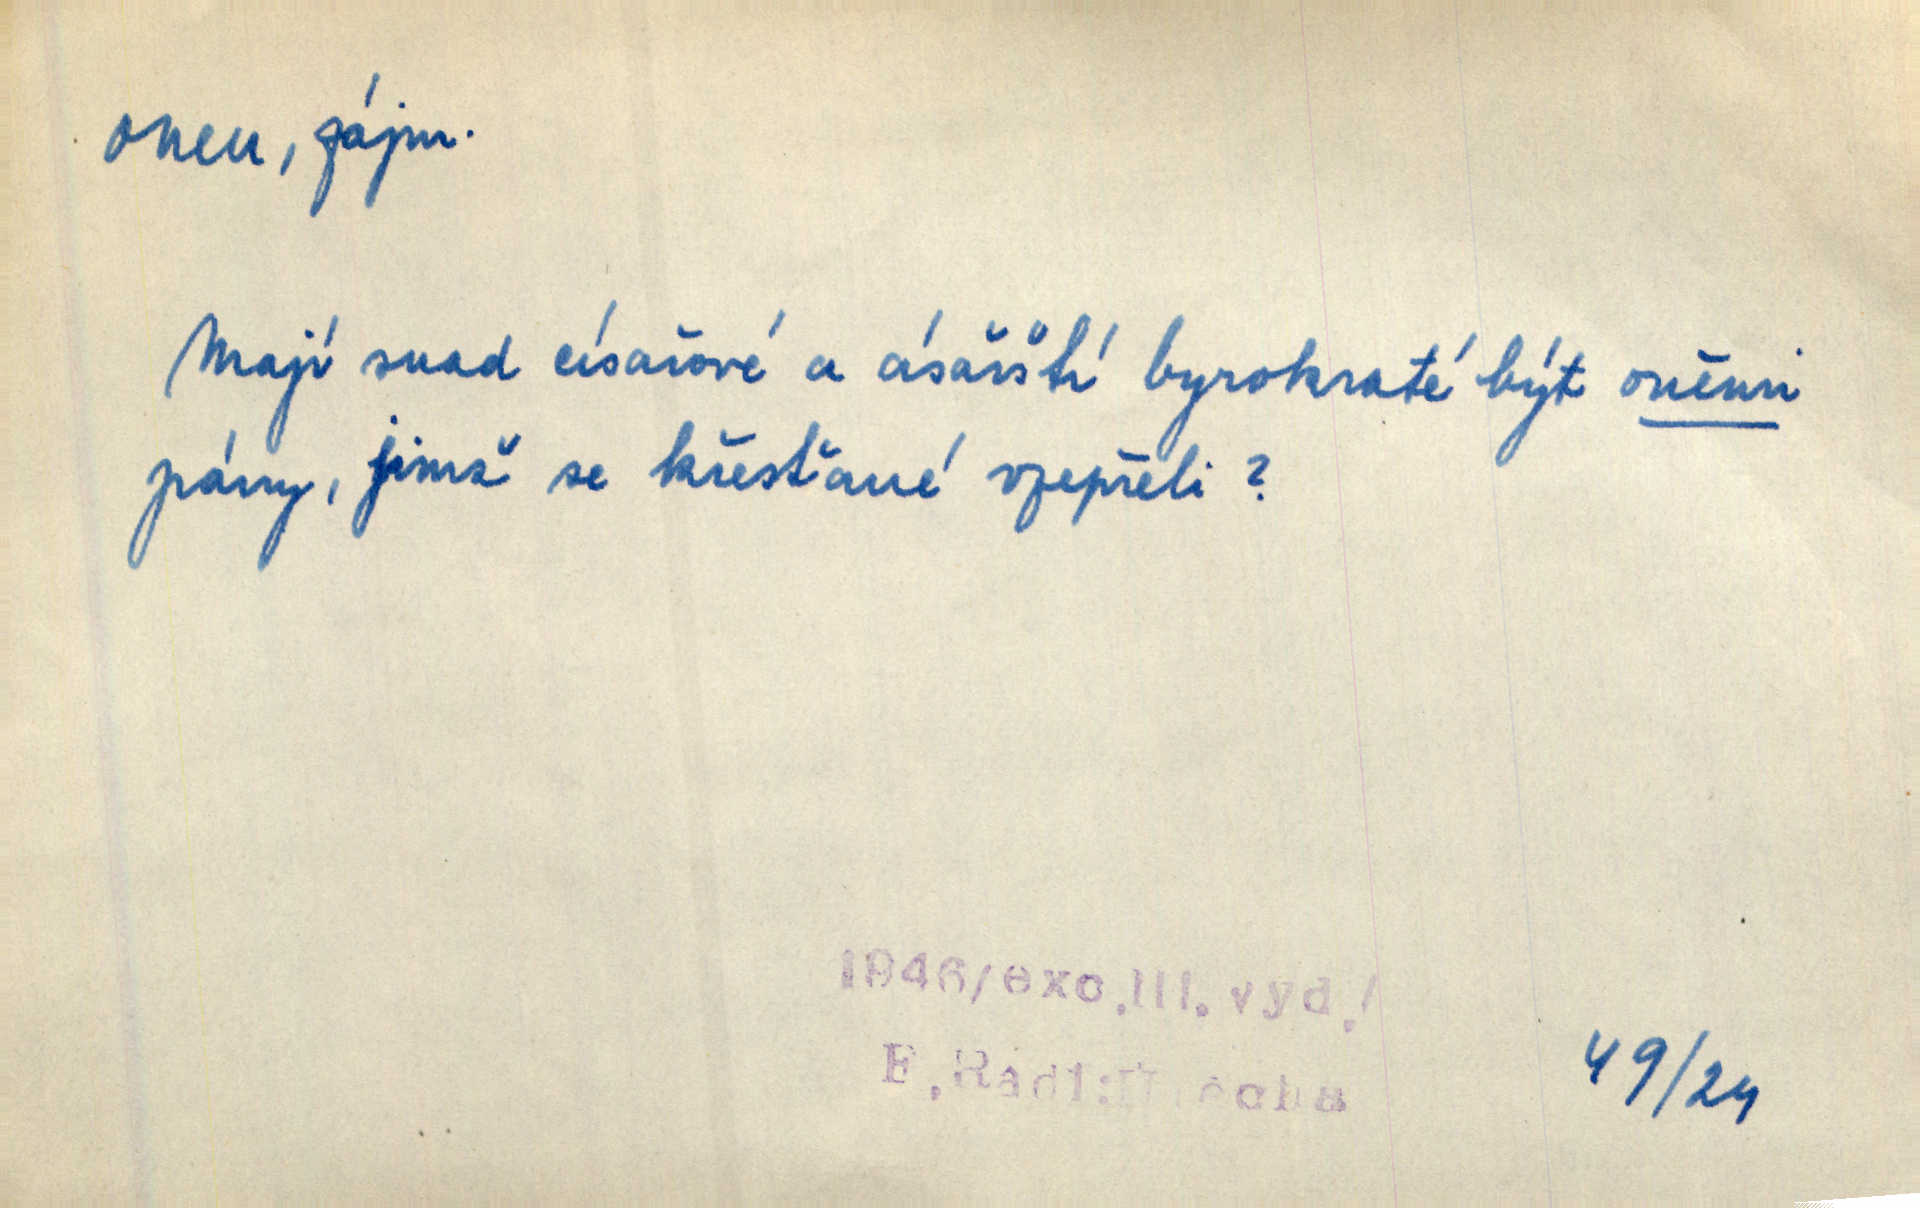 onen, zájm.
Mají snad císařové a císařští byrokraté být oněmi
pány, jimž se křesťané vzepřeli ?
1946/exc.III.vyd./
F.Rádl:Útěcha
49/24